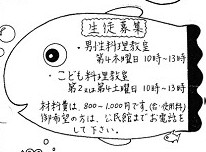 生徒募集
・男性料理教室
第4木曜日 10時～13時
・こども料理教室
第2又は第4土曜日 10時～13時
材料費は、800～1,000円です。(会・使用料)
御希望の方は、公民館までお電話を
して下さい。